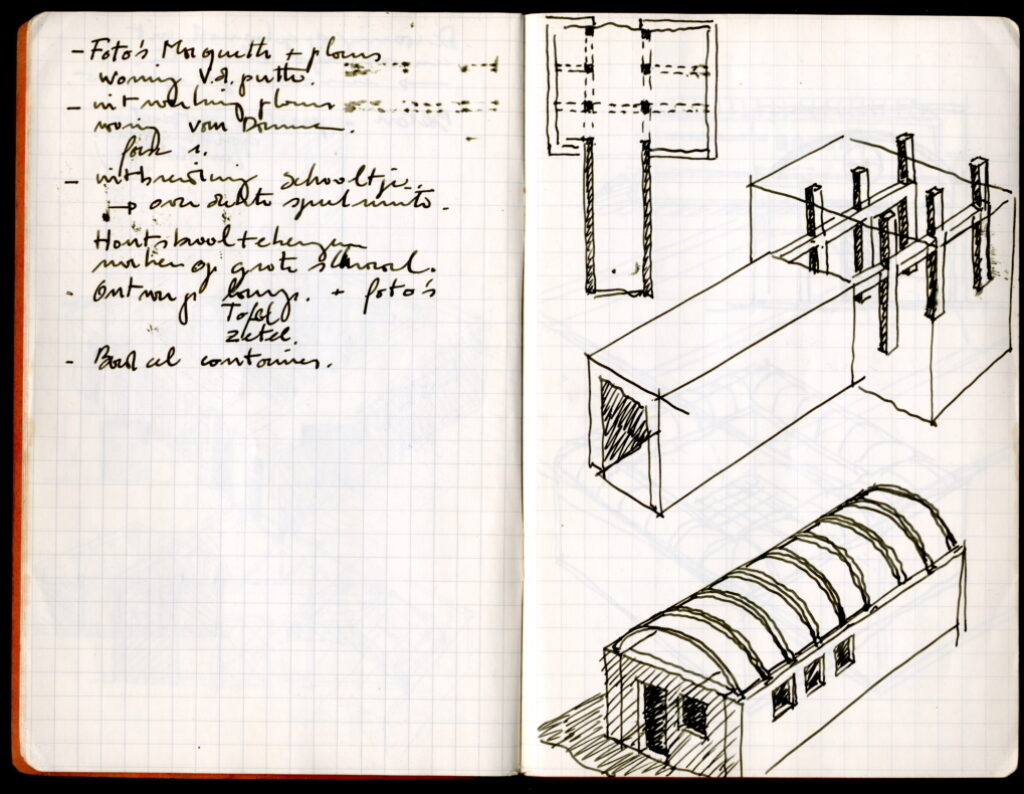 - Foto's Maquette + plans
woning v.d. putte.
- uitwerking plans
woning van Damme.
- uitbreiding schooltje.
→ overdekte speelruimte.
Houtskooltekeningen
werken op grote schaal.
- Ontwerp lamp. + foto's
Tafel
Zetel.
- containers.